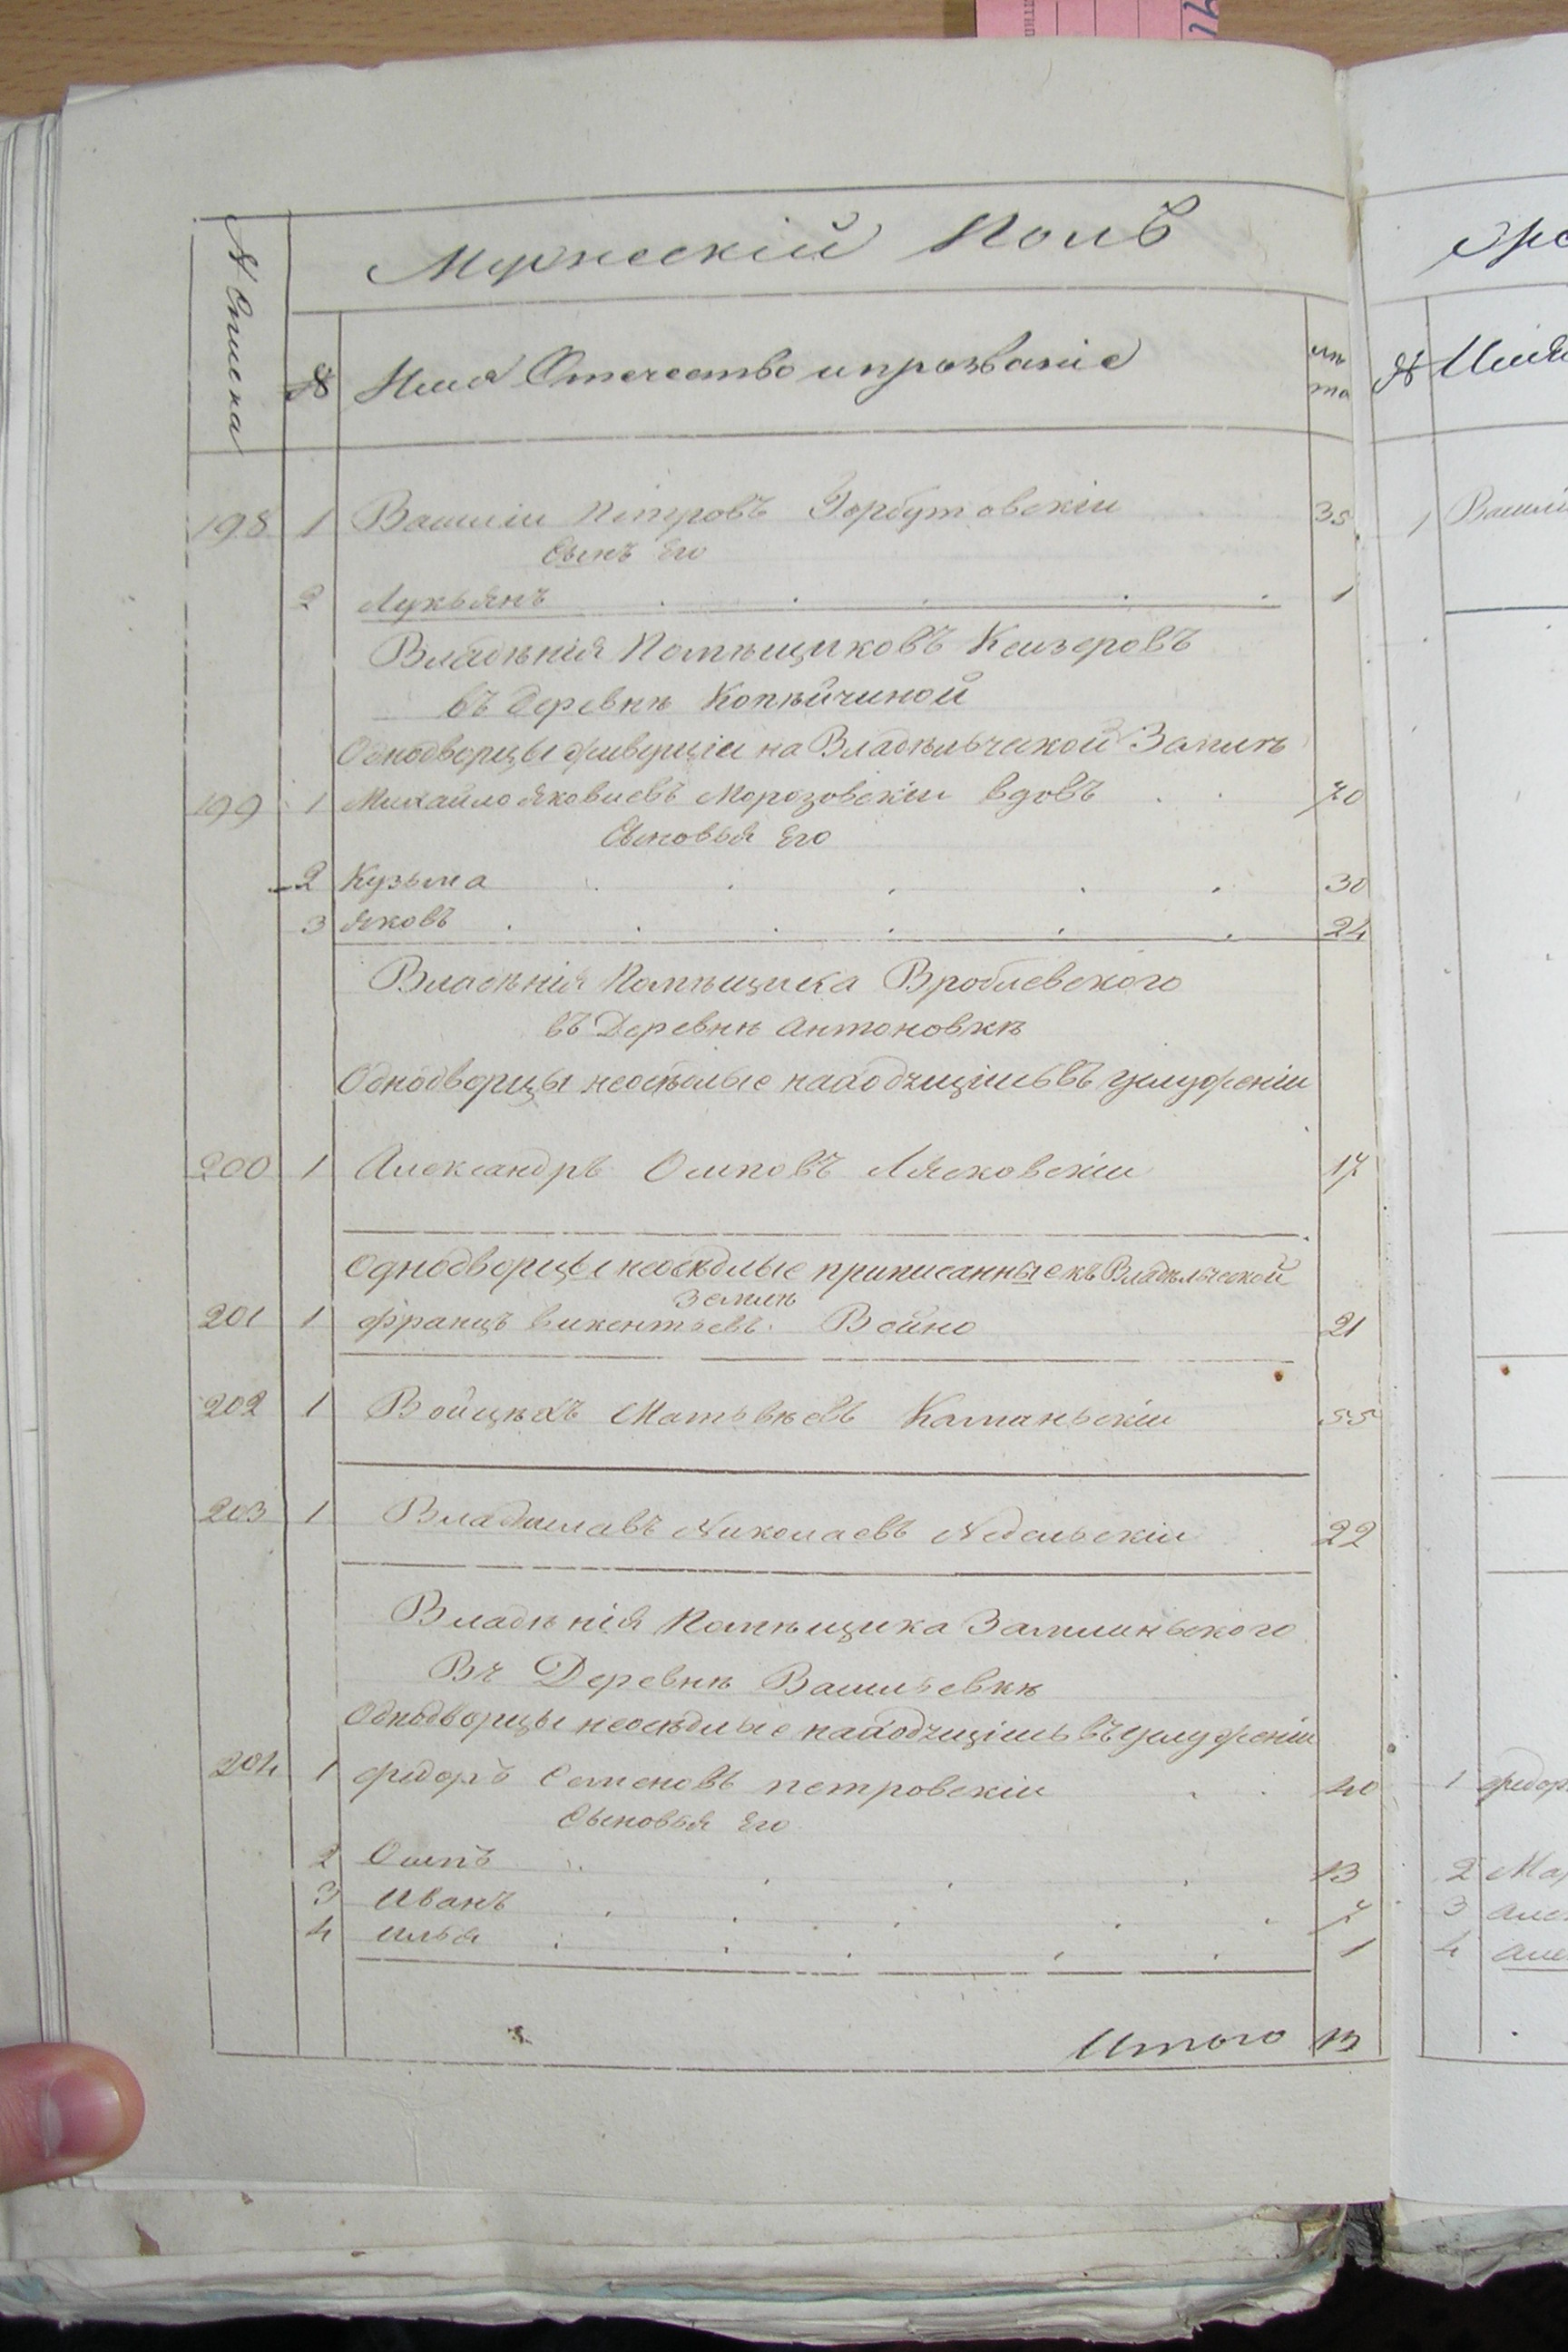 Мужескій Полъ
№ Списка
№ Имя Отчество и прозваніе лѣта
198 1 Василіи Петровъ Горбутовскіи 35
Сынъ Его
2 Лукьянъ 1
Владѣнія Помѣщиковъ Кеизеровъ
въ Деревнѣ Копѣйчиной
Однодворцы живущіи на Владѣльческой Землѣ
199 1 Михайло Яковлевъ Морозовскіи вдовъ 70
Сыновья Его
2 Кузьма 30
3 Яковъ 24
Владѣнія Помѣщика Вроблевского
въ Деревнѣ Антоновкѣ
Однодворцы неосѣдлые находящіись въ услуженіи
200 1 Александръ Осиповъ Лясковскіи 17
Однодворцы неосѣдлые приписанные къ Владѣльческой
Землѣ
201 1 Францъ Викентьевъ Война 21
202 1 Войцѣхъ Матьвѣевъ Каманьскіи 55
203 1 Владиславъ Николаевъ 22
Владѣнія Помѣщика
Въ Деревнѣ Васильевкѣ
Однодворцы неосѣдлые находящіись въ услуженіи
204 1 Федоръ Семеновъ Петровскіи 40
Сыновья Его
2 Осипъ 13
3 Иванъ 7
4 Илья 1
Итого 13
№ Имя
1 Васили
1 Федор
2 Мар
3 Але
4 Але